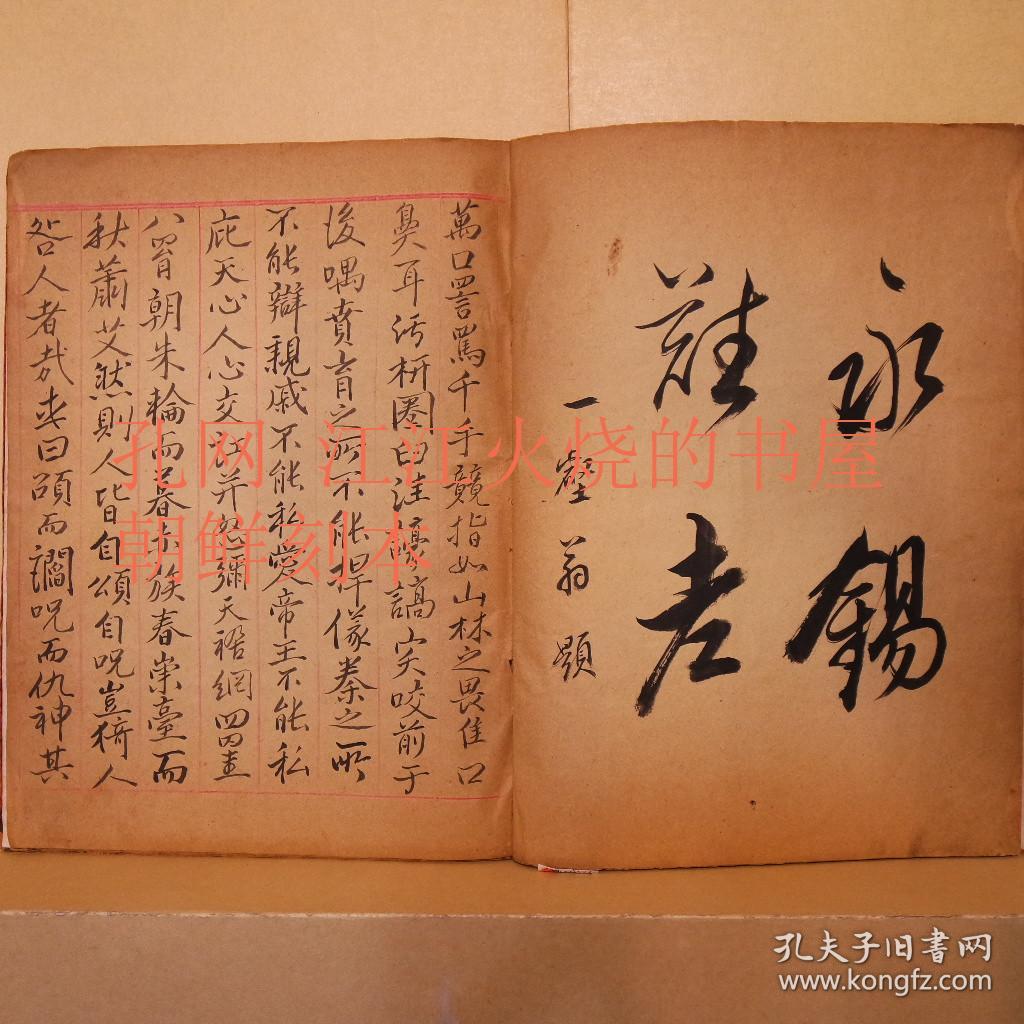 永錫
難老
一壑翁題
萬口詈罵千手競指如山林之畏佳口
鼻耳污枅圈臼洼譹謞宎咬前于
後喁賁育之所不能捍儀秦之所
不能辯親戚不能私愛帝王不能私
庇天心人心交并怒彌天網四
八朝朱輪而暮赤族春崇臺而
秋蕭艾然則人皆自頌自呪豈猗人
咎人者哉曰頌而讕呪而仇神其
孔网 江江火烧的书屋
朝鲜刻本
孔夫子旧书网
www.kongfz.com